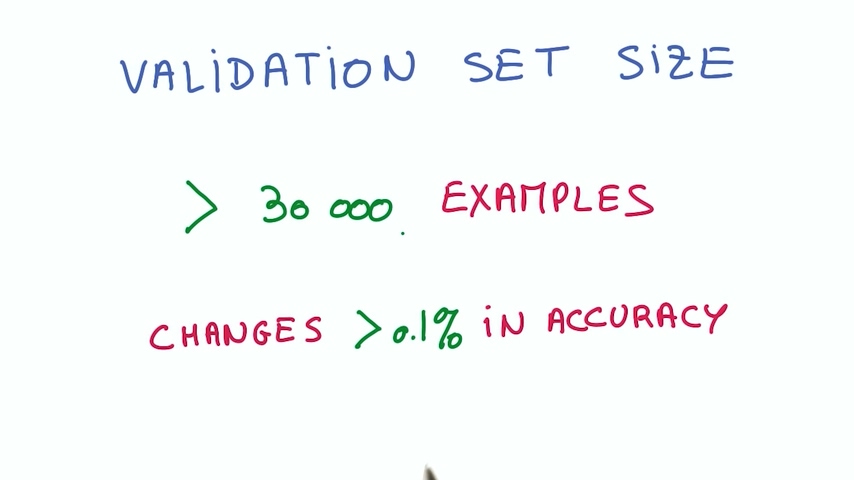 VALiDATiON SET SiZE
> 30 000 EXAMPLES
CHANGES > 0.1% iN ACCURACY